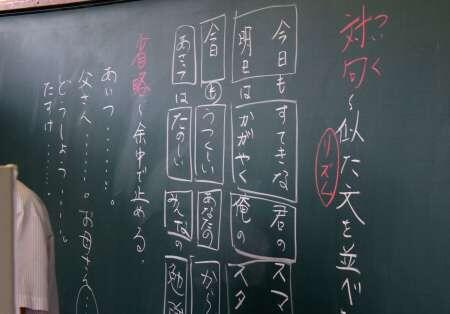 ついく
対句〜似た文を並べ
リズム
今日もすてきな君のスマ
明日はかがやく俺のスタ
今日もうつくしいあなたのから
はたのしいみんなの勉
省略〜余中で止める。
あいつ……。
父さん……。お母さん…。
どうしょっ……。
たすけ……